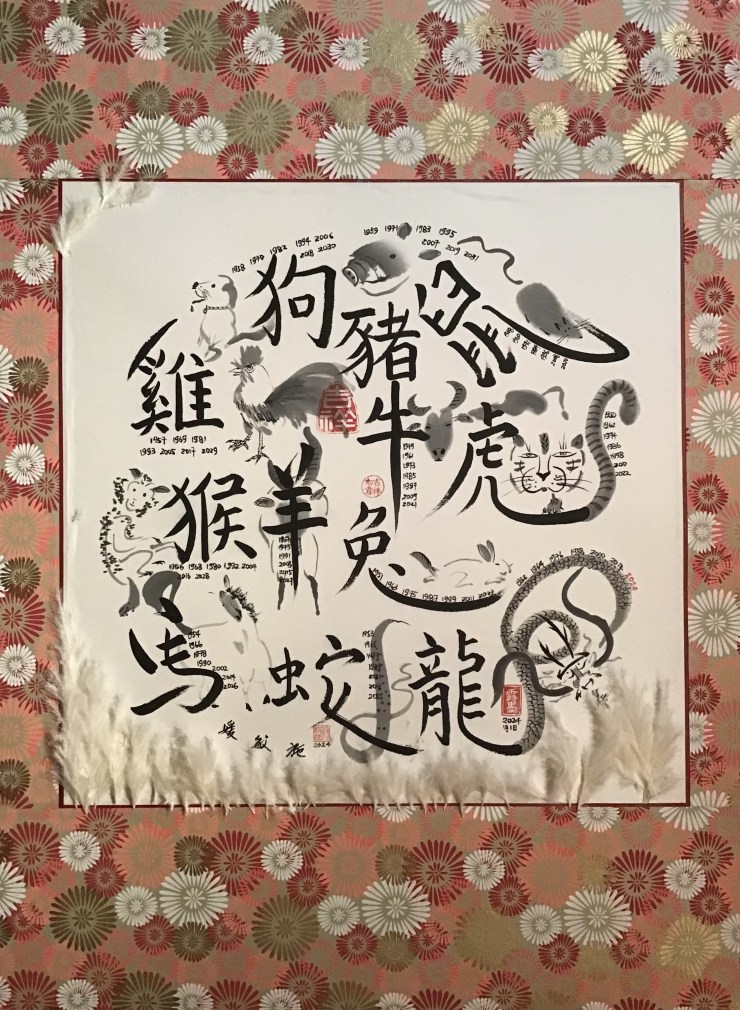 狗
1958 1970 1982 1994 2006
2018 2030
1959 1971 1983 1995
2007 2019 2031
豬
鼠
雞
1957 1969 1981
1993 2005 2017 2029
吉祥
牛
1949
1961
1973
1985
1997
2009
2021
虎
1950
1962
1974
1986
1998
2010
2022
猴
1956 1968 1980 1992 2004
2016 2028
羊
1979
1991
2003
2015
2027
吉祥
如意
兔
1951 1963 1975 1987 1999 2011 2023
馬
1954
1966
1978
1990
2002
2014
蛇
1953
1965
龍
2024
媛 敏 施
2024